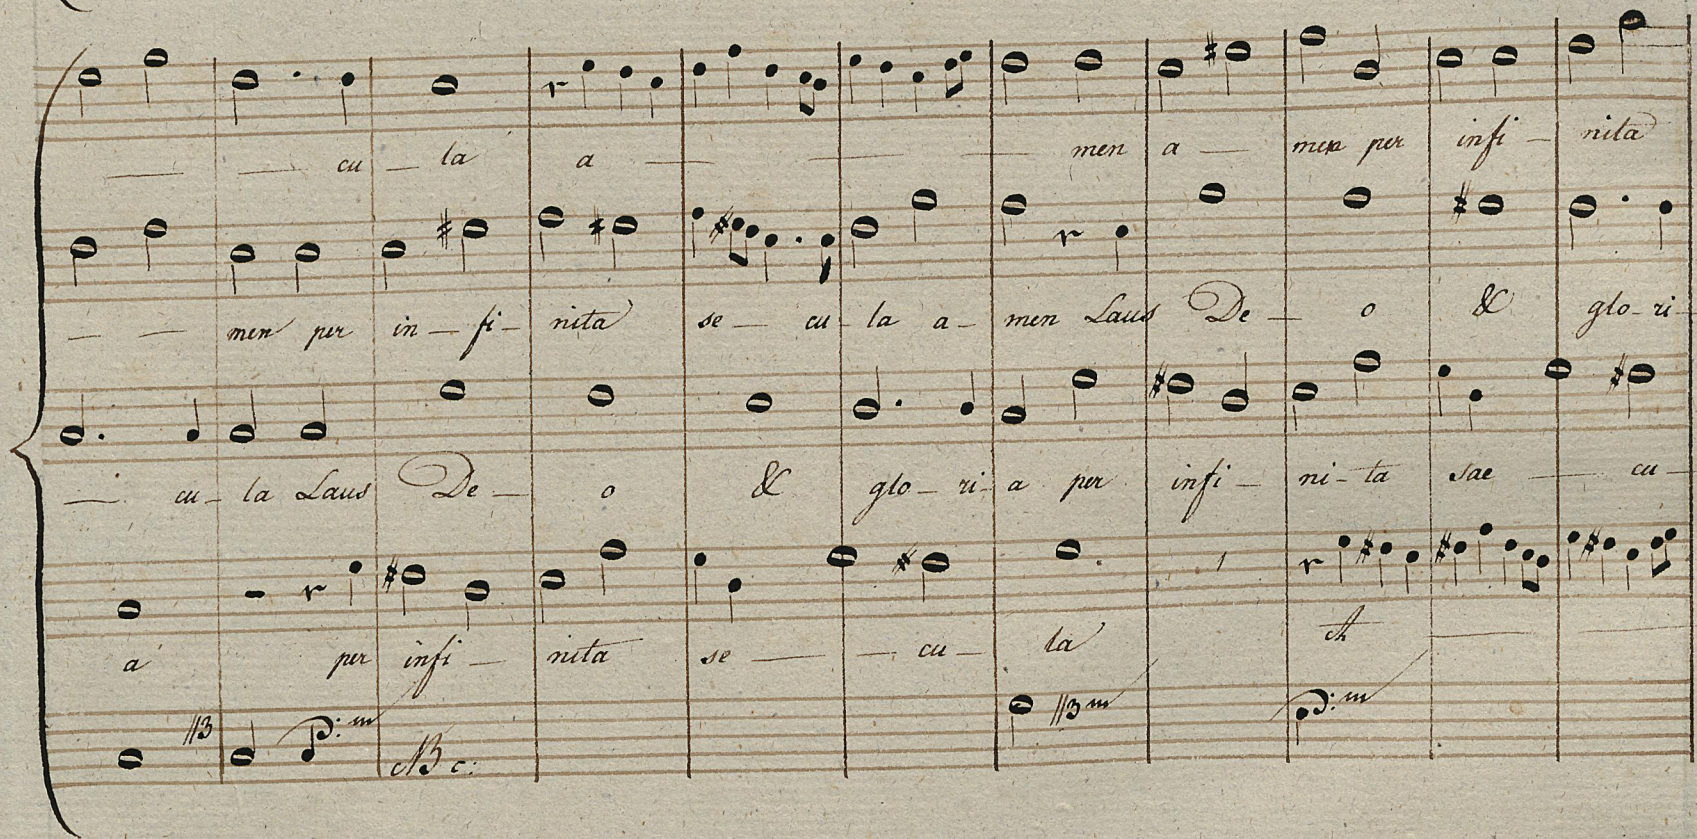 cu - la a - men a - men per infi - nita
- men per in - fi - nita se - cu - la a - men Laus De - o & glo - ri -
- cu - la Laus De - o & glo - ri - a per infi - ni - ta sae - cu -
a per infi - nita se - cu - la A